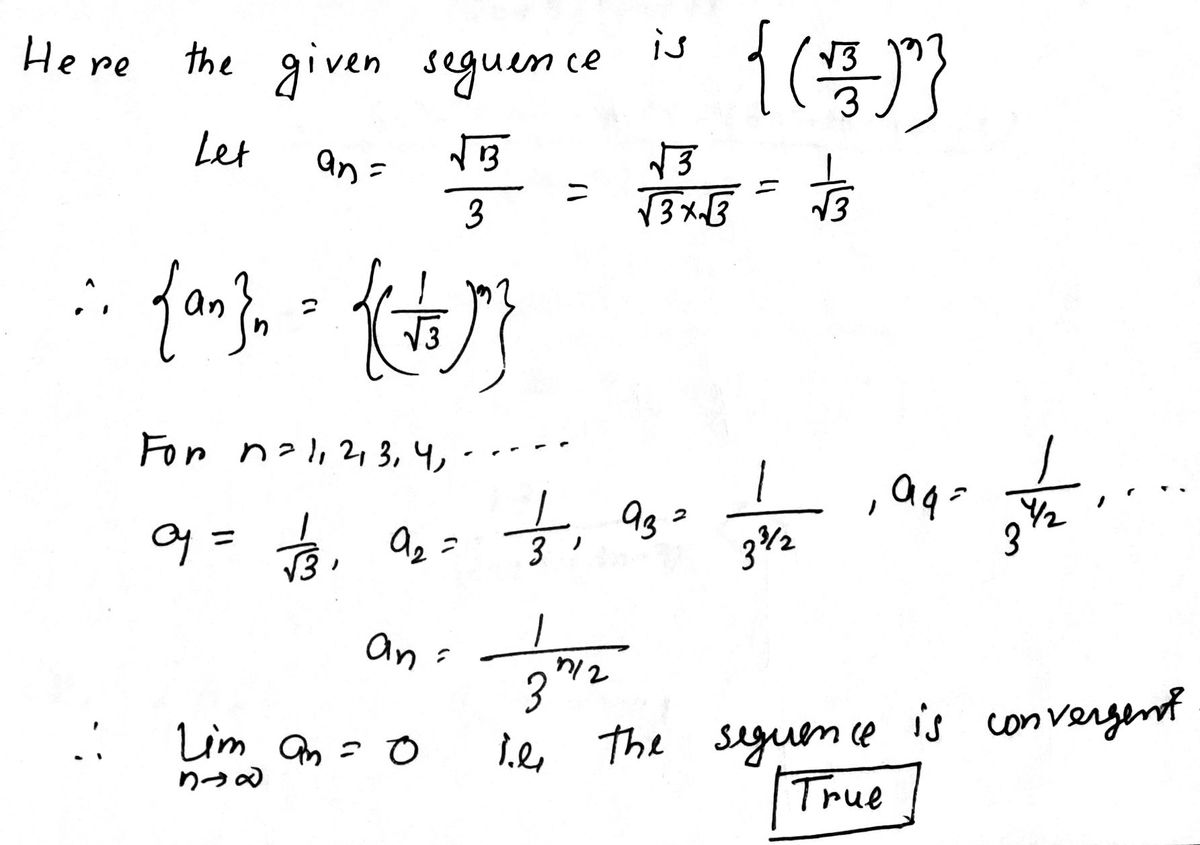 Here the given sequence is {(√3/3)^n}
Let an = √3/3 = √3/(√3×√3) = 1/√3
∴ {an}n = {(1/√3)^n}
For n=1, 2, 3, 4, -----
a1 = 1/√3, a2 = 1/3, a3 = 1/3^(3/2), a4 = 1/3^(4/2), ...
an = 1/3^(n/2)
∴ Lim n→∞ an = 0 i.e, the sequence is convergent.
True